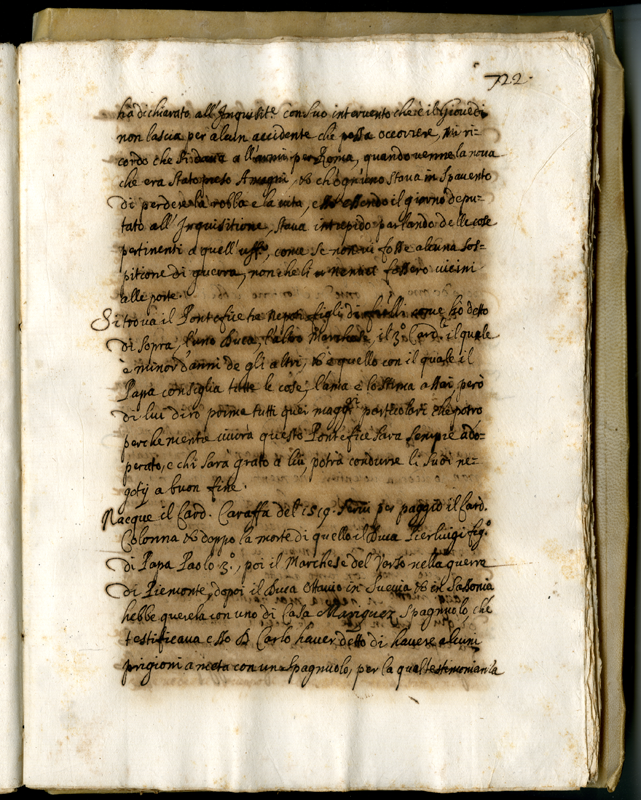 722.
ha dichiarato all'Inquisite. con suo intervento che è il Giovedi
non lascia per alcun accidente che possa occorrere, Mi ri-
cordo che si dava a all'armi per Roma, quando venne la nova
che era stato preso Anagni, et ch'ogn'uno stava in spavento
di perdere la robba e la vita, esso essendo il giorno depu-
tato all'Inquisitione, stava intrepido parlando delle cose
pertinenti a quell'uffo, come se non vi fosse alcuna sos-
pitione di guerra, non che li nemici fossero vicini
alle porte.
Si trova il Pontefice tre Nepoti figli di fratelli come ho detto
di sopra, l'uno Duca, l'altro Marchese, il 3o Card.l il quale
è minor d'anni de gli altri, et è quello con il quale il
Papa consiglia tutte le cose; l'ama e lo stima assai però
di lui dirò prima tutti quei magri particolari che potrò
perche mentre vivera questo Pontefice sarà sempre ado-
perato, e chi sarà grato a lui, potrà condurre li suoi ne-
gotij a buon fine.
Nacque il Card. Caraffa del 1519. Servi per paggio il Card.
Colonna et doppo la morte di quello il Duca Pierluigi figo
di Papa Paolo 3o, poi il Marchese del Vasto nella guerra
di Piemonte, dapoi il Duca Ottavio in Suevia et in Sassonia
hebbe querela con uno di Casa Manriquez Spagnuolo, che
testificava esso D. Carlo haver detto di havere alcuni
prigioni a meta con un Spagnuolo, per la qual testimonianza